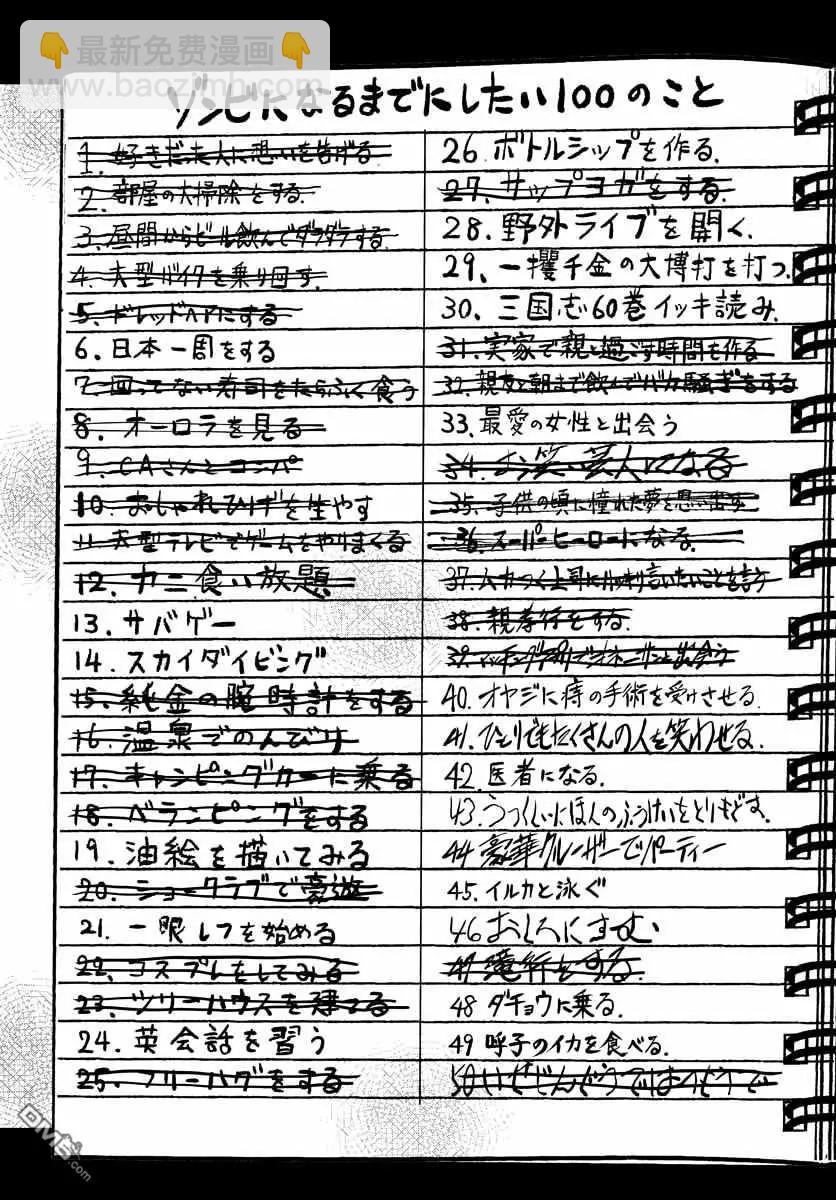 最新免费漫画
www.baozimh.com
ゾンビになるまでにしたい100のこと
1. 好きだった人に想いを告げる
2. 部屋の大掃除をする.
3. 昼間からビール飲んでダラダラする
4. 大型バイクを乗り回す.
5. ドレッドヘアにする
6. 日本一周をする
7. 回ってない寿司をたらふく食う
8. オーロラを見る
9. CAさんとコンパ
10. おしゃれひげを生やす
11. 大型テレビでゲームをやりまくる
12. カニ食い放題
13. サバゲー
14. スカイダイビング
15. 純金の腕時計をする
16. 温泉でのんびり
17. キャンピングカーに乗る
18. ベランピングをする
19. 油絵を描いてみる
20. ショークラブで豪遊
21. 一眼レフを始める
22. コスプレをしてみる
23. ツリーハウスを建てる
24. 英会話を習う
25. フリーハグをする
26. ボトルシップを作る.
27. サップヨガをする.
28. 野外ライブを開く.
29、一攫千金の大博打を打つ.
30. 三国志60巻イッキ読み.
31. 実家で親と過ごす時間を作る
32. 親友と朝まで飲んでバカ騒ぎをする
33. 最愛の女性と出会う
34. お笑い芸人になる
35. 子供の頃に憧れた夢を思い出す
36. スーパーヒーローになる.
37. ムカつく上司にハッキリ言いたいことを言う
38. 親孝行をする.
39. マッチングアプリで 出会う
40. オヤジに痔の手術を受けさせる.
41. ひとりでもたくさんの人を笑わせる.
42. 医者になる.
43. うつくしいにほんのふうけいをとりもどす.
44 豪華クルーザーでパーティー
45. イルカと泳ぐ
46 おしろにすむ
47 滝行をする.
48 ダチョウに乗る.
49 呼子のイカを食べる.
50